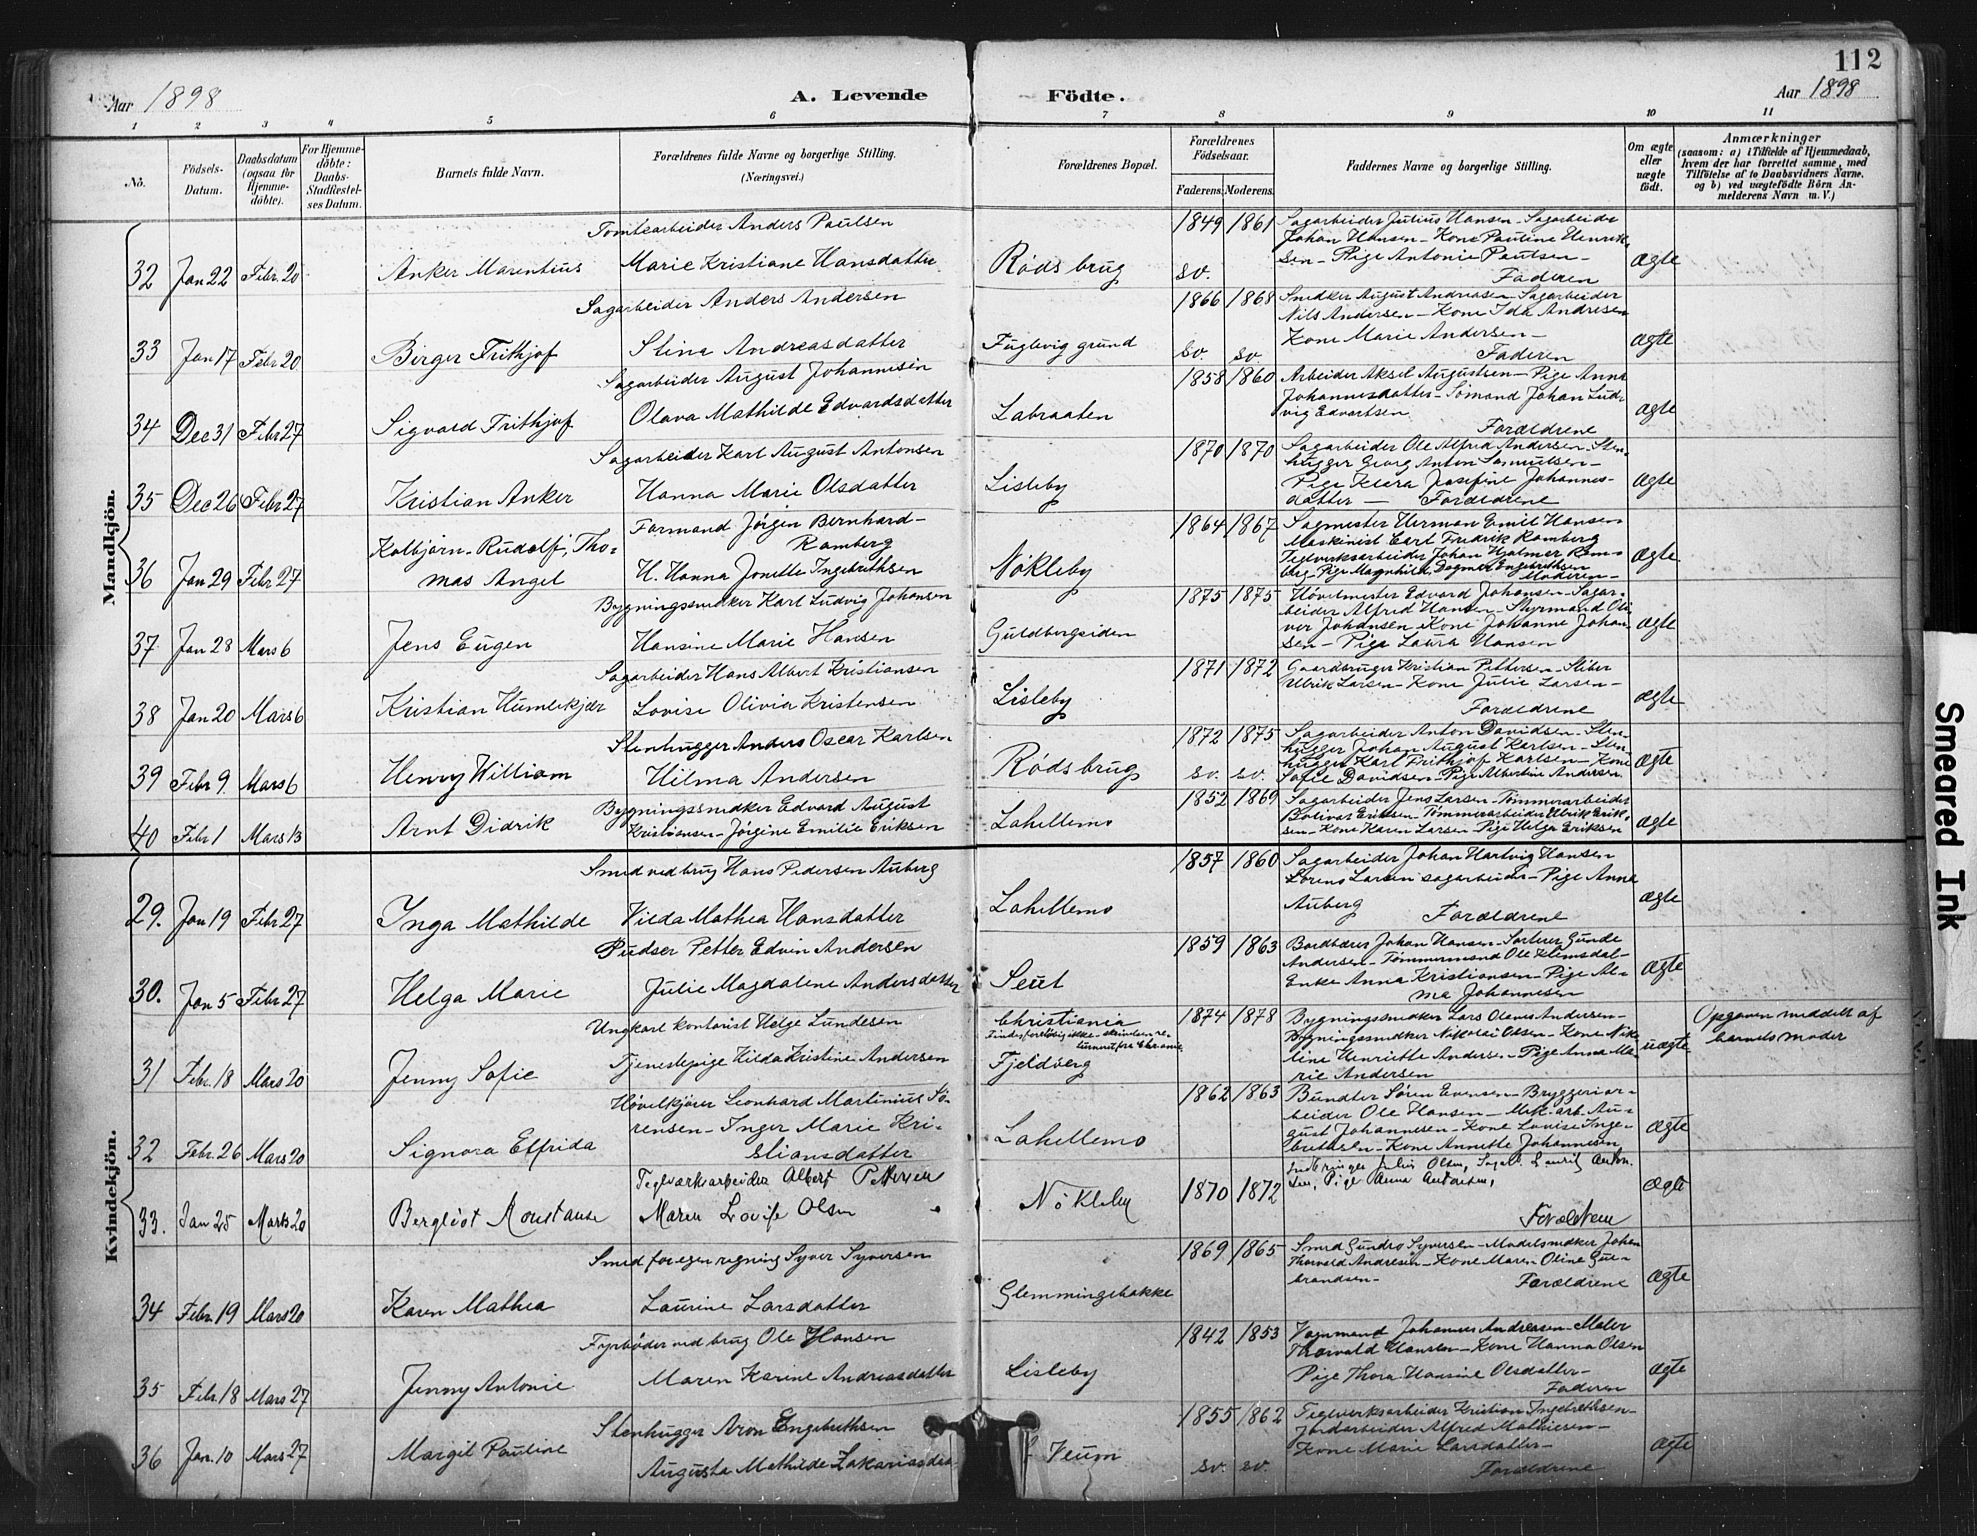 112
Aar 1898
A. Levende Födte.
Aar 1898
1 2 3 4 5 6 7 8 9 10 11
No.
Födsels-Datum.
Daabsdatum (ogsaa for Hjemme-döbte).
For Hjemme-döbte: Daabs-Stadfæstel-ses Datum.
Barnets fulde Navn.
Forældrenes fulde Navne og borgerlige Stilling. (Næringsvei.)
Forældrenes Bopæl.
Forældrenes Födselsaar.
Faderens. Moderens.
Faddernes Navne og borgerlige Stilling.
Om ægte eller uægte födt.
Anmærkninger
(saasom: a) i Tilfælde af Hjemmedaab, hvem der har forrettet samme, med Tilföielse af to Daabsvidners Navne, og b) ved uægtefödte Börn An-melderens Navn m. V.)
Mandkjön.
Tomtearbeider Anders Paulsen
32 Jan 22 Febr. 20 Anker Marentius Marie Kristiane Hansdatter Røds brug 1849 sv. 1861
Sagarbeider Julius Hansen - Sagarbeider
Johan Hansen - Kone Pauline Henrik-
sen - Pige Antonie Paulsen -
Faderen ægte
Sagarbeider Anders Andersen
33 Jan 17 Febr 20 Birger Frithjof Stina Andreasdatter Fuglevig grund 1866 sv. 1868 sv.
Snedker August Andreasen - Sagarbeider
Nils Andersen - Kone Ida Andresen
Kone Marie Andersen -
Faderen ægte
Sagarbeider August Johannesen
34 Dec 31 Febr 27 Sigvald Frithjof Olava Mathilde Edvardsdatter Labraaten 1858 1860
Arbeider Aksel Augustsen - Pige Anna
Johannesdatter - Sömand Johan Lud-
vig Edvartsen
Forældrene ægte
Sagarbeider Karl August Antonsen
35 Dec 26 Febr 27 Kristian Anker Hanna Marie Olsdatter Lisleby 1870 1870
Sagarbeider Ole Alfred Andersen - Sten-
hugger Georg Anton Samuelsen -
Pige Klara Josefine Johannes-
datter - Forældrene ægte
Formand Jörgen Bernhard
Ramberg
36 Jan 29 Febr 27 Kolbjørn Rudolf Tho-
mas Angel H. Hanna Jonette Ingebrethsen Nökleby 1864 1867
Sagmester Herman Emil Hansen
Maskinist Carl Fredrik Ramberg
Teglverksarbeider Johan Hjalmar Ram-
berg - Pige Magnhild Dagmar Engebrethsen
Moderen - ægte
Bygningssnedker Karl Ludvig Johansen
37 Jan 28 Mars 6 Jens Eugen Hansine Marie Hansen Guldbergsiden 1875 1875
Hövelmester Edvard Johansen - Sagar-
beider Alfred Hansen - Styrmand Oli-
ver Johansen Kone Johanne Johan-
sen - Pige Laura Hansen ægte
Sagarbeider Hans Albert Kristiansen
38 Jan 20 Mars 6 Kristian Humlekjær Lovise Olivia Kristensen Lisleby 1871 1872
Gaardbruger Kristian Pettersen - Stiber
Ulrik Larsen - Kone Julie Larsen -
Forældrene ægte
Stenhugger Anders Oscar Karlsen
39 Febr 9. Mars 6 Henry William Hilma Andersen Røds brug 1872 sv. 1875 sv.
Sagarbeider Anton Davidsen - Sten-
hugger Johan August Karlsen - Sten-
hugger Karl Frithjof Karlsen - Kone
Sofie Davidsen - Pige Albertine Andersen ægte
Bygningssnedker Edvard August
40 Febr 1 Mars 13 Arnt Didrik Kristiansen - Jörgine Emilie Eriksen Lahellemo 1852 1869
Sagarbeider Jens Larsen - Tömmerarbeider
Bolivar Eriksen - Tömmerarbeider Ulrik Erik-
sen - Kone Karen Larsen - Pige Helga Eriksen ægte
Kvindekjön.
Smed ved brug Hans Pedersen Auberg
29. Jan 19 Febr 27 Inga Mathilde Hilda Mathea Hansdatter Lahellemo 1857 1860
Sagarbeider Johan Hartvig Hansen
Lorens Larsen sagarbeider - Pige Anna
Auberg Forældrene ægte
Pudser Petter Edvin Andersen
30. Jan 5 Febr 27 Helga Marie Julie Magdalene Andersdatter Seut 1859 1863
Bordbærer Johan Hansen - Sorterer Gunde
Andersen - Tömmermand Ole Klemsdal -
Enke Anna Kristiansen - Pige Al-
ma Johannesen ægte
Ungkarl kontorist Helge Lundesen
31 Febr. 18 Mars 20 Jenny Sofie Tjenestepige Hilda Kristine Andersen Christiania
Fjeldberg 1874 1878
Bygningssnedker Lars Olaves Andersen -
Bygningssnedker Nikolai Olsen - Kone Niko-
line Henriette Andersen - Pige Anna Ma-
rie Andersen uægte
Opgaven meddelt af
barnets moder
Hövelkjører Leonhard Martinius Sö-
rensen - Inger Marie Kri-
stiansdatter
32 Febr. 26 Mars 20 Signora Elfrida Lahellemo 1862 1863
Bundter Søren Evensen - Bryggeriar-
beider Ole Hansen - Mek. arb. Au-
gust Johannesen - Kone Lovise Inge-
brethsen - Kone Annette Johannesen ægte
Teglværksarbeider Albert Pettersen
33. Jan 25 Marts 20 Bergliot Konstanse Maren Lovise Olsen Nökleby 1870 1872
Indbringer Julius Olsen, Sagarb. Laurits Anton-
sen, Pige Anna Antonsen,
Forældrene ægte
Smed for egen regning Syver Syversen
34 Febr. 19 Mars 20 Karen Mathea Laurine Larsdatter Glemmingebakke 1869 1865
Smed Gundro Syversen - Modelsnedker Johan
Thorvald Andresen - Kone Maren Oline Gul-
brandsen - Forældrene ægte
Fyrböder ved brug Ole Hansen
35 Febr. 18 Mars 27 Jenny Antonie Maren Karine Andreasdatter Lisleby 1842 1853
Vognmand Johannes Andresen - Maler
Thorvald Hansen - Kone Hanna Olsen
Pige Thora Hansine Olsdatter -
Faderen ægte
Stenhugger Aron Engebrethsen
36 Jan. 10 Mars 27 Margit Pauline Augusta Mathilde Zakariasdat- L Veum 1855 sv. 1862 sv.
Teglverksarbeider Kristian Ingebrethsen -
Jordarbeider Alfred Mathiesen -
Kone Marie Larsdatter -
Forældrene ægte
Smeared Ink